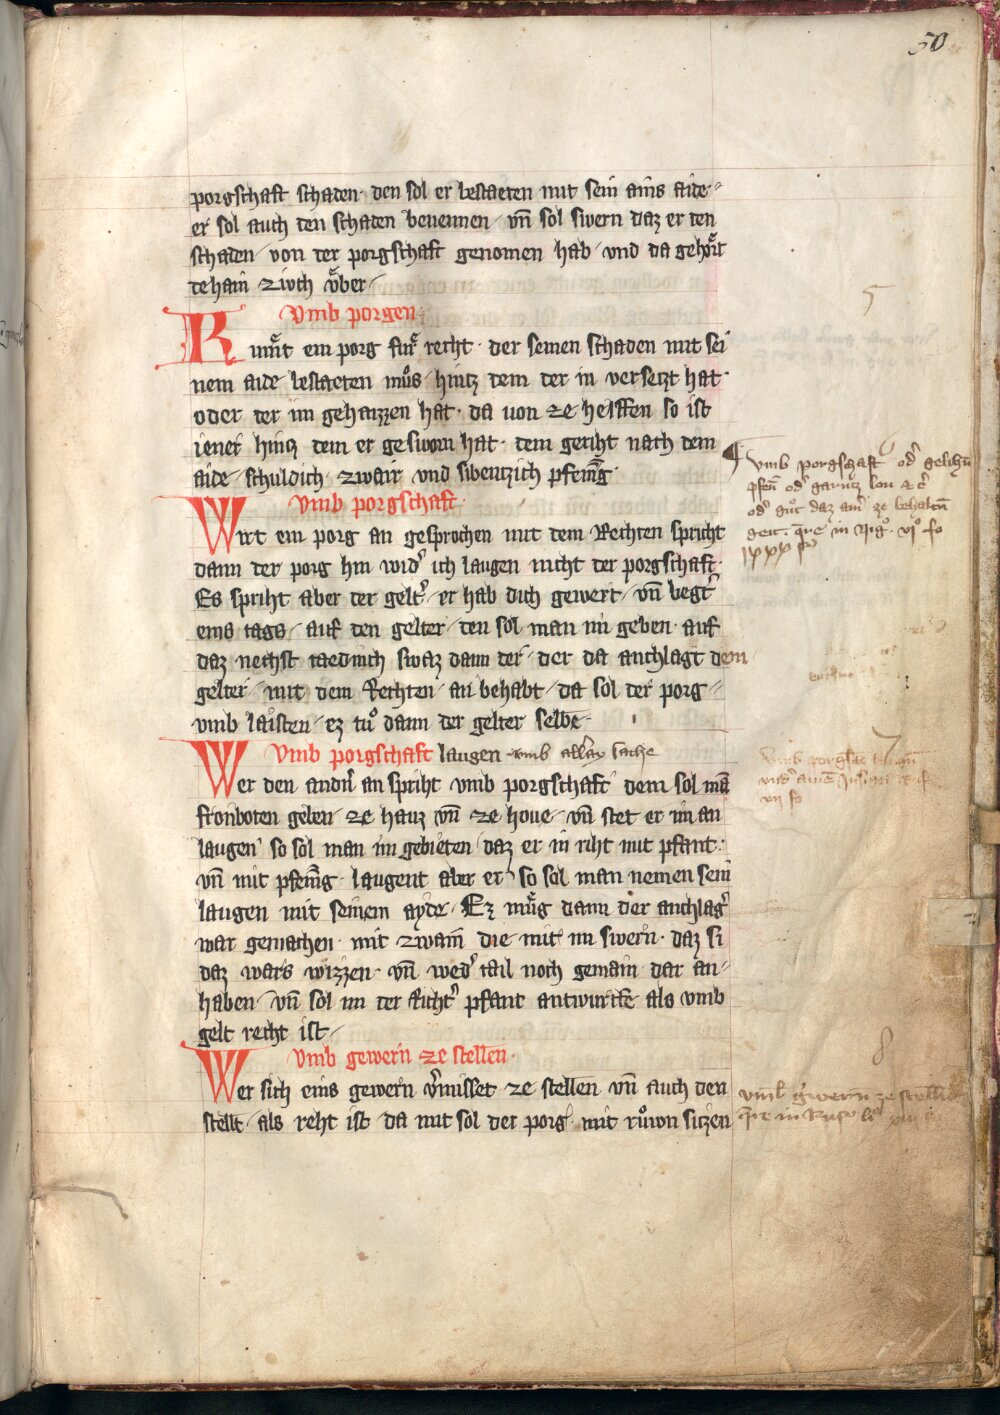 50
porgschaft schaden· den sol er bestaeten mit sein ains aide⸗
er sol auch den schaden benennen· vn̄ sol swern daz er den
schaden von der porgschaft genomen hab· vnd da gehoͤrt
dehain zwch vͤber·
Vmb porgen·
5
Kumͤt ein porg fuͤr recht· der seinen schaden mit sei
nem aide bestaeten muͦs hintz dem der in versetzt hat·
oder der im gehaizzen hat· da uon ze helffen so ist
iener hintz dem er gesworn hat· dem geriht nach dem
aide schuldich zwair vnd sibentzich pfenīg·
Vmb porgschaft·
6
¶ Vmb porgschaft od͛ gelihn̄
pfen̄ od͛ garntz lon
od͛ guͦt daz am͛ ze behaltn̄
geit.
Wirt ein porg an gesprochen mit dem Rechten spricht
dann der porg hin wid͛ ich laugen nicht der porgschaft·
Es spriht aber der gelt͛ er hab dich gewert· vn̄ begt͛
eins tags auf den gelter den sol man im geben· auf
daz nechst taedinch swaz dann der der da anchlagt dem
gelter mit dem Rechten an behabt da sol der porg⸗
vmb laisten ez tuͦ dann der gelter selbe·
Vmb porgschaft laugen vmb all͛lay sache
7
Wer den andn͛ an spriht vmb porgschaft dem sol mā
fronboten geben ze hauz vn̄ ze houe· vn̄ stet er im an
laugen so sol man im gebieten daz er in riht mit pfant·
vn̄ mit pfenīg· laugent aber er so sol man nemen sein
laugen mit seinem ayde· Ez muͤg dann der anchlag͛
war gemachen· mit zwain̄ die mit im swern· daz si
daz wars wizzen· vn̄ wed͛ tail noch gemain dar an⸗
haben· vn̄ sol im der Richt͛ pfant antwurtē als vmb
gelt recht ist·
Vmb gewern ze stellen·
8
Wer sich eins gewern v͛misset ze stellen vn̄ auch den
stellt als reht ist da mit sol der porg mit ruͦwn sitzen
vmb gwern ze stellen